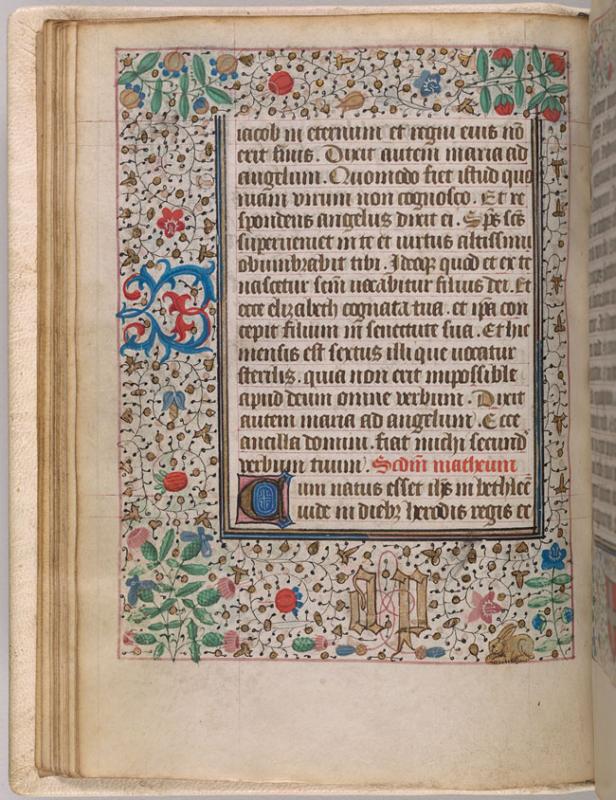 iacob in eternum et regni eius nō
erit finis. Dixit autem maria ad
angelum. Quomodo fiet istud quo
niam virum non cognosco. Et re
spondens angelus dixit ei. Sp̄s sc̄s
superueniet in te et uirtus altissimi
obumbrabit tibi. Ideoq̧ quod et ex te
nascetur sc̄m uocabitur filius dei. Et
ecce elizabeth cognata tua. et ip̄a con
cepit filium in senectute sua. Et hic
mensis est sextus illi que uocatur
sterilis. quia non erit impossible
apud deum omne verbum. Dixit
autem maria ad angelum. Ecce
ancilla domini. fiat michi secund
verbum tuum. Scd̄m matheum
Cum natus esset ih̄s in bethleē
iude in dieb; herodis regis ec